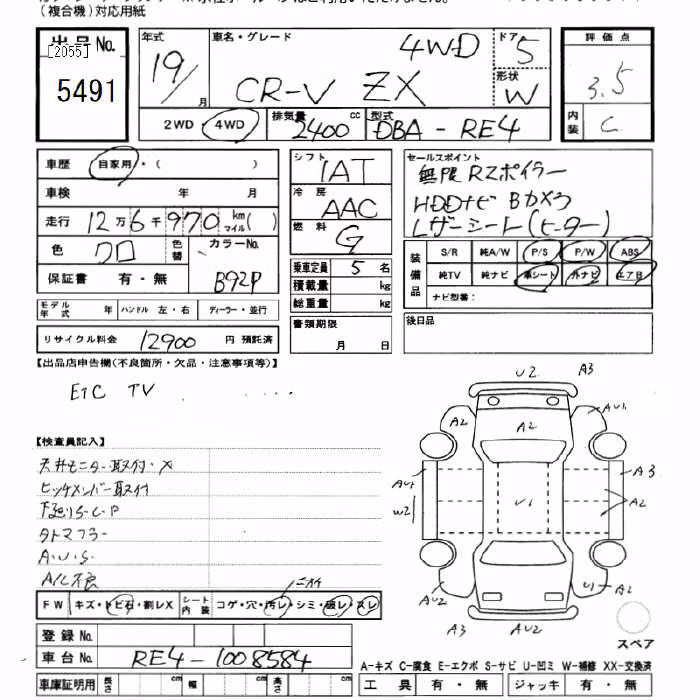 (複合機)対応用紙
出品No.
[2055]
5491
年式
19/月
車名・グレード
4WD
CR-V ZX
ドア
5
形状
W
評価点
3.5
内装
C
2WD・4WD
排気量
2400 cc
型式
DBA - RE4
車歴
自家用・( )
車検 年 月
走行 12万6千970 km マイル( )
色 クロ
色替
カラーNo.
B92P
保証書 有・無
モデル年式 年 ハンドル 左・右 ディーラー・並行
リサイクル料金 12900 円 預託済
シフト
IAT
冷房
AAC
燃料
G
乗車定員 5 名
積載量 kg
総重量 kg
書類期限
月 日
セールスポイント
無限RZポイラー
HDDナビ Bカメラ
Lザーシート(ヒーター)
装備品
S/R 純A/W P/S P/W ABS
純TV 純ナビ 革シート 外ナビ エアB
ナビ型番:
後日品
【出品店申告欄(不良箇所・欠品・注意事項等)】
ETC TV
【検査員記入】
天井モニター取付・X
ヒッチメンバー取付
下廻りS・C・P
タトマフラー
A・U・S
A/C不良
U2 A3
A2 A2 AU1
AU4 W2 U1 A3 A2
AU2 U1 A2
A3 AU2
スペア
FW キズ・トビ石・割レX シート内装 コゲ・穴・汚レ・シミ・破レ・スレ
ニオイ
登録No.
車台No. RE4-1008584
A-キズ C-腐食 E-エクボ S-サビ U-凹ミ W-補修 XX-交換済
車庫証明用 長さ cm 幅 cm 高さ cm
工具 有・無 ジャッキ 有・無